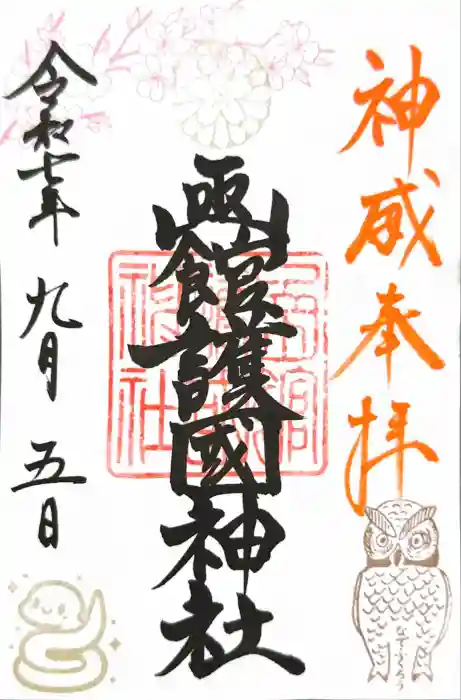 神威奉拝
函館護國神社
令和七年 九月 五日